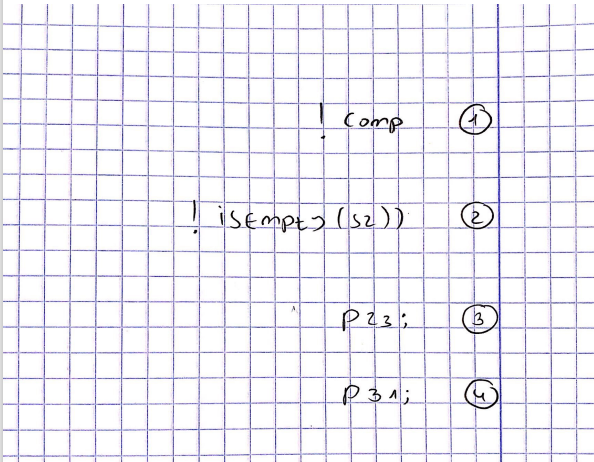 ! comp ①
! isEmpty(s2)) ②
P23; ③
P31; ④